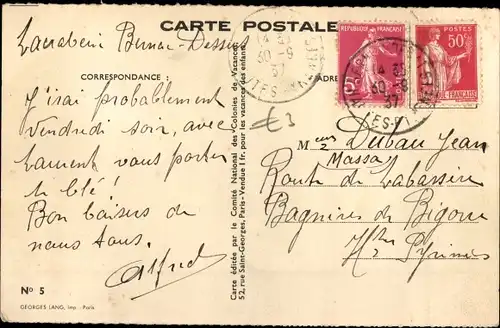 CARTE POSTALE
Bernac-Dessus
CORRESPONDANCE :
ADRE
J'irai probablement
Vendredi soir, avec
Laurent vous porter
le blé !
Bon baisers de
nous tous.
Alfred
Nº 5
GEORGES LANG, Imp. - Paris
Carte éditée par le Comité National des Colonies de Vacances
52, rue Saint-Georges, Paris - Vendue 1 fr. pour les vacances des enfants.
RÉPUBLIQUE FRANÇAISE
POSTES
50c
FRANÇAISE
30 -9
37
£3
Dubau Jean
Massay
Route de Labassère
Bagnères de Bigorre
Htes Pyrénées